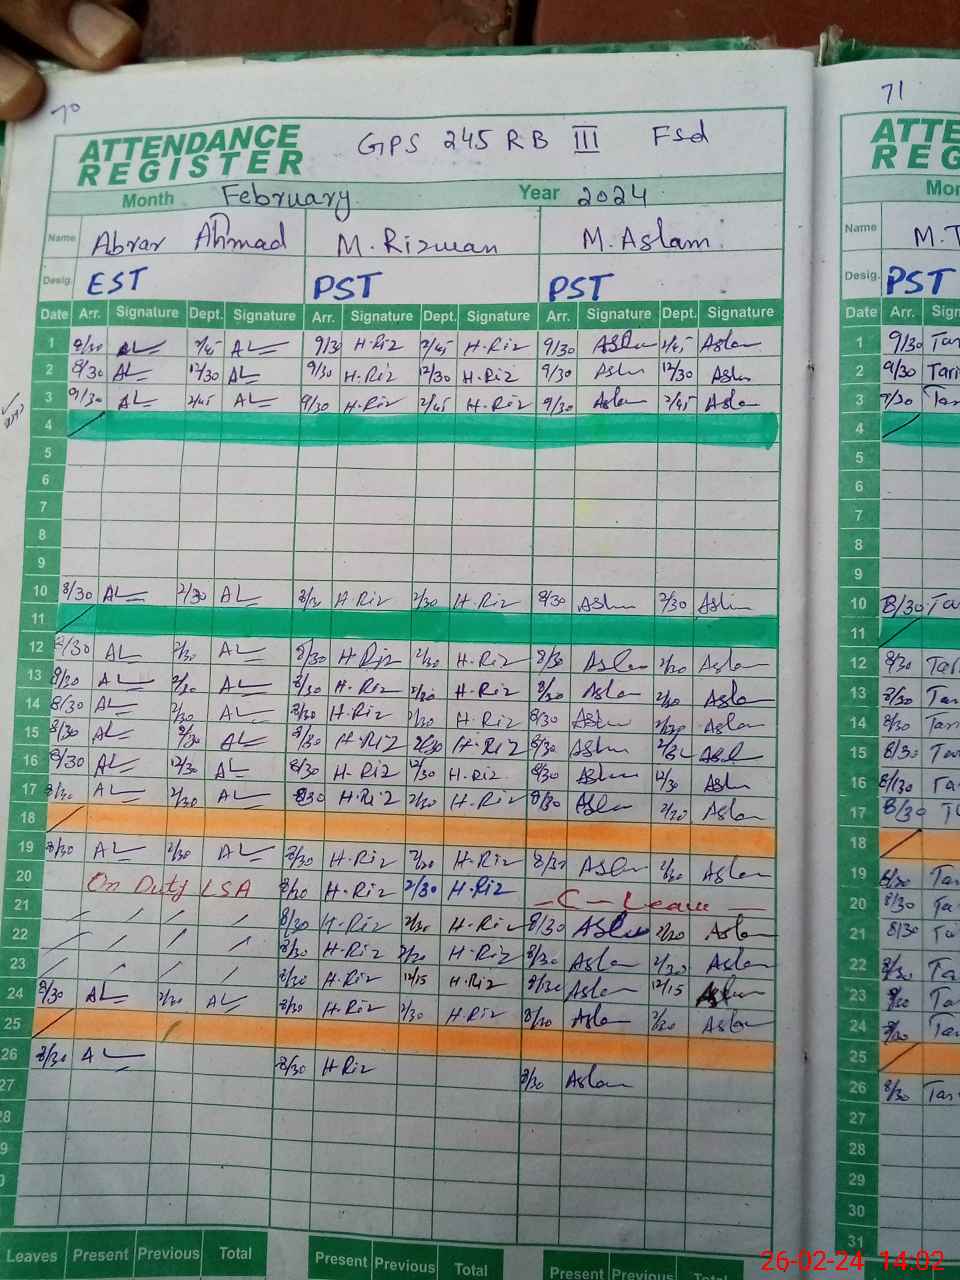 70
71
ATTENDANCE REGISTER GPS 245 RB III Fsd
Month February Year 2024
Name Abrar Ahmad M. Rizwan M. Aslam
Desig. EST PST PST
Date Arr. Signature Dept. Signature Arr. Signature Dept. Signature Arr. Signature Dept. Signature
1 AL 2/45 AL 9/30 H-Riz 2/45 H-Riz 9/30 2/45 Aslam
2 8/30 AL 12/30 AL 9/30 H-Riz 12/30 H-Riz 9/30 12/30
3 9/30 AL 2/45 AL 9/30 H-Riz 2/45 H-Riz 9/30 Aslam 2/45 Aslam
4
5
6
7
8
9
10 8/30 AL 2/30 AL H-Riz 2/30 H-Riz 8/30 2/30
11
12 8/30 AL 2/30 AL 8/30 H-Riz 2/30 H-Riz 8/30 Aslam 2/30 Aslam
13 8/30 AL 2/30 AL 8/30 H-Riz 2/30 H-Riz 8/30 Aslam 2/30 Aslam
14 8/30 AL 2/30 AL 8/30 H-Riz 2/30 H-Riz 8/30 2/30 Aslam
15 8/30 AL 2/30 AL 8/30 H-Riz 2/30 H-Riz 8/30
16 8/30 AL 12/30 AL 8/30 H-Riz 12/30 H-Riz 8/30 12/30
17 8/30 AL 2/30 AL 8/30 H-Riz 2/30 H-Riz 8/30 Aslam 2/30 Aslam
18
19 8/30 AL 2/30 AL 8/30 H-Riz 2/30 H-Riz 8/30 Aslam 2/30 Aslam
20 On Duty LSA 8/30 H-Riz 2/30 H-Riz - C - Leave -
21 8/30 H-Riz 2/30 H-Riz 8/30 2/30 Aslam
22 8/30 H-Riz 2/30 H-Riz 8/30 Aslam 2/30 Aslam
23 8/30 H-Riz 12/15 H-Riz 8/30 Aslam 12/15
24 8/30 AL 2/30 AL 8/30 H-Riz 2/30 H-Riz 8/30 Aslam 2/30 Aslam
25
26 8/30 AL 8/30 H-Riz 8/30 Aslam
27
28
Leaves Present Previous Total Present Previous Total Present Previous Total
ATTE
REG
Mon
Name M. T
Desig. PST
Date Arr. Sign
1 9/30 Tar
2 9/30 Tari
3 Tar
4
5
6
7
8
9
10 8/30 Ta
11
12 8/30 Tar
13 8/30 Tar
14 8/30 Tar
15 8/30 Ta
16 Ta
17 8/30
18
19 8/30 Tar
20 8/30 Ta
21 8/30 Ta
22 8/30 Ta
23 Ta
24 8/30 Tar
25
26 8/30 Tar
27
28
29
30
31
26-02-24 14:02